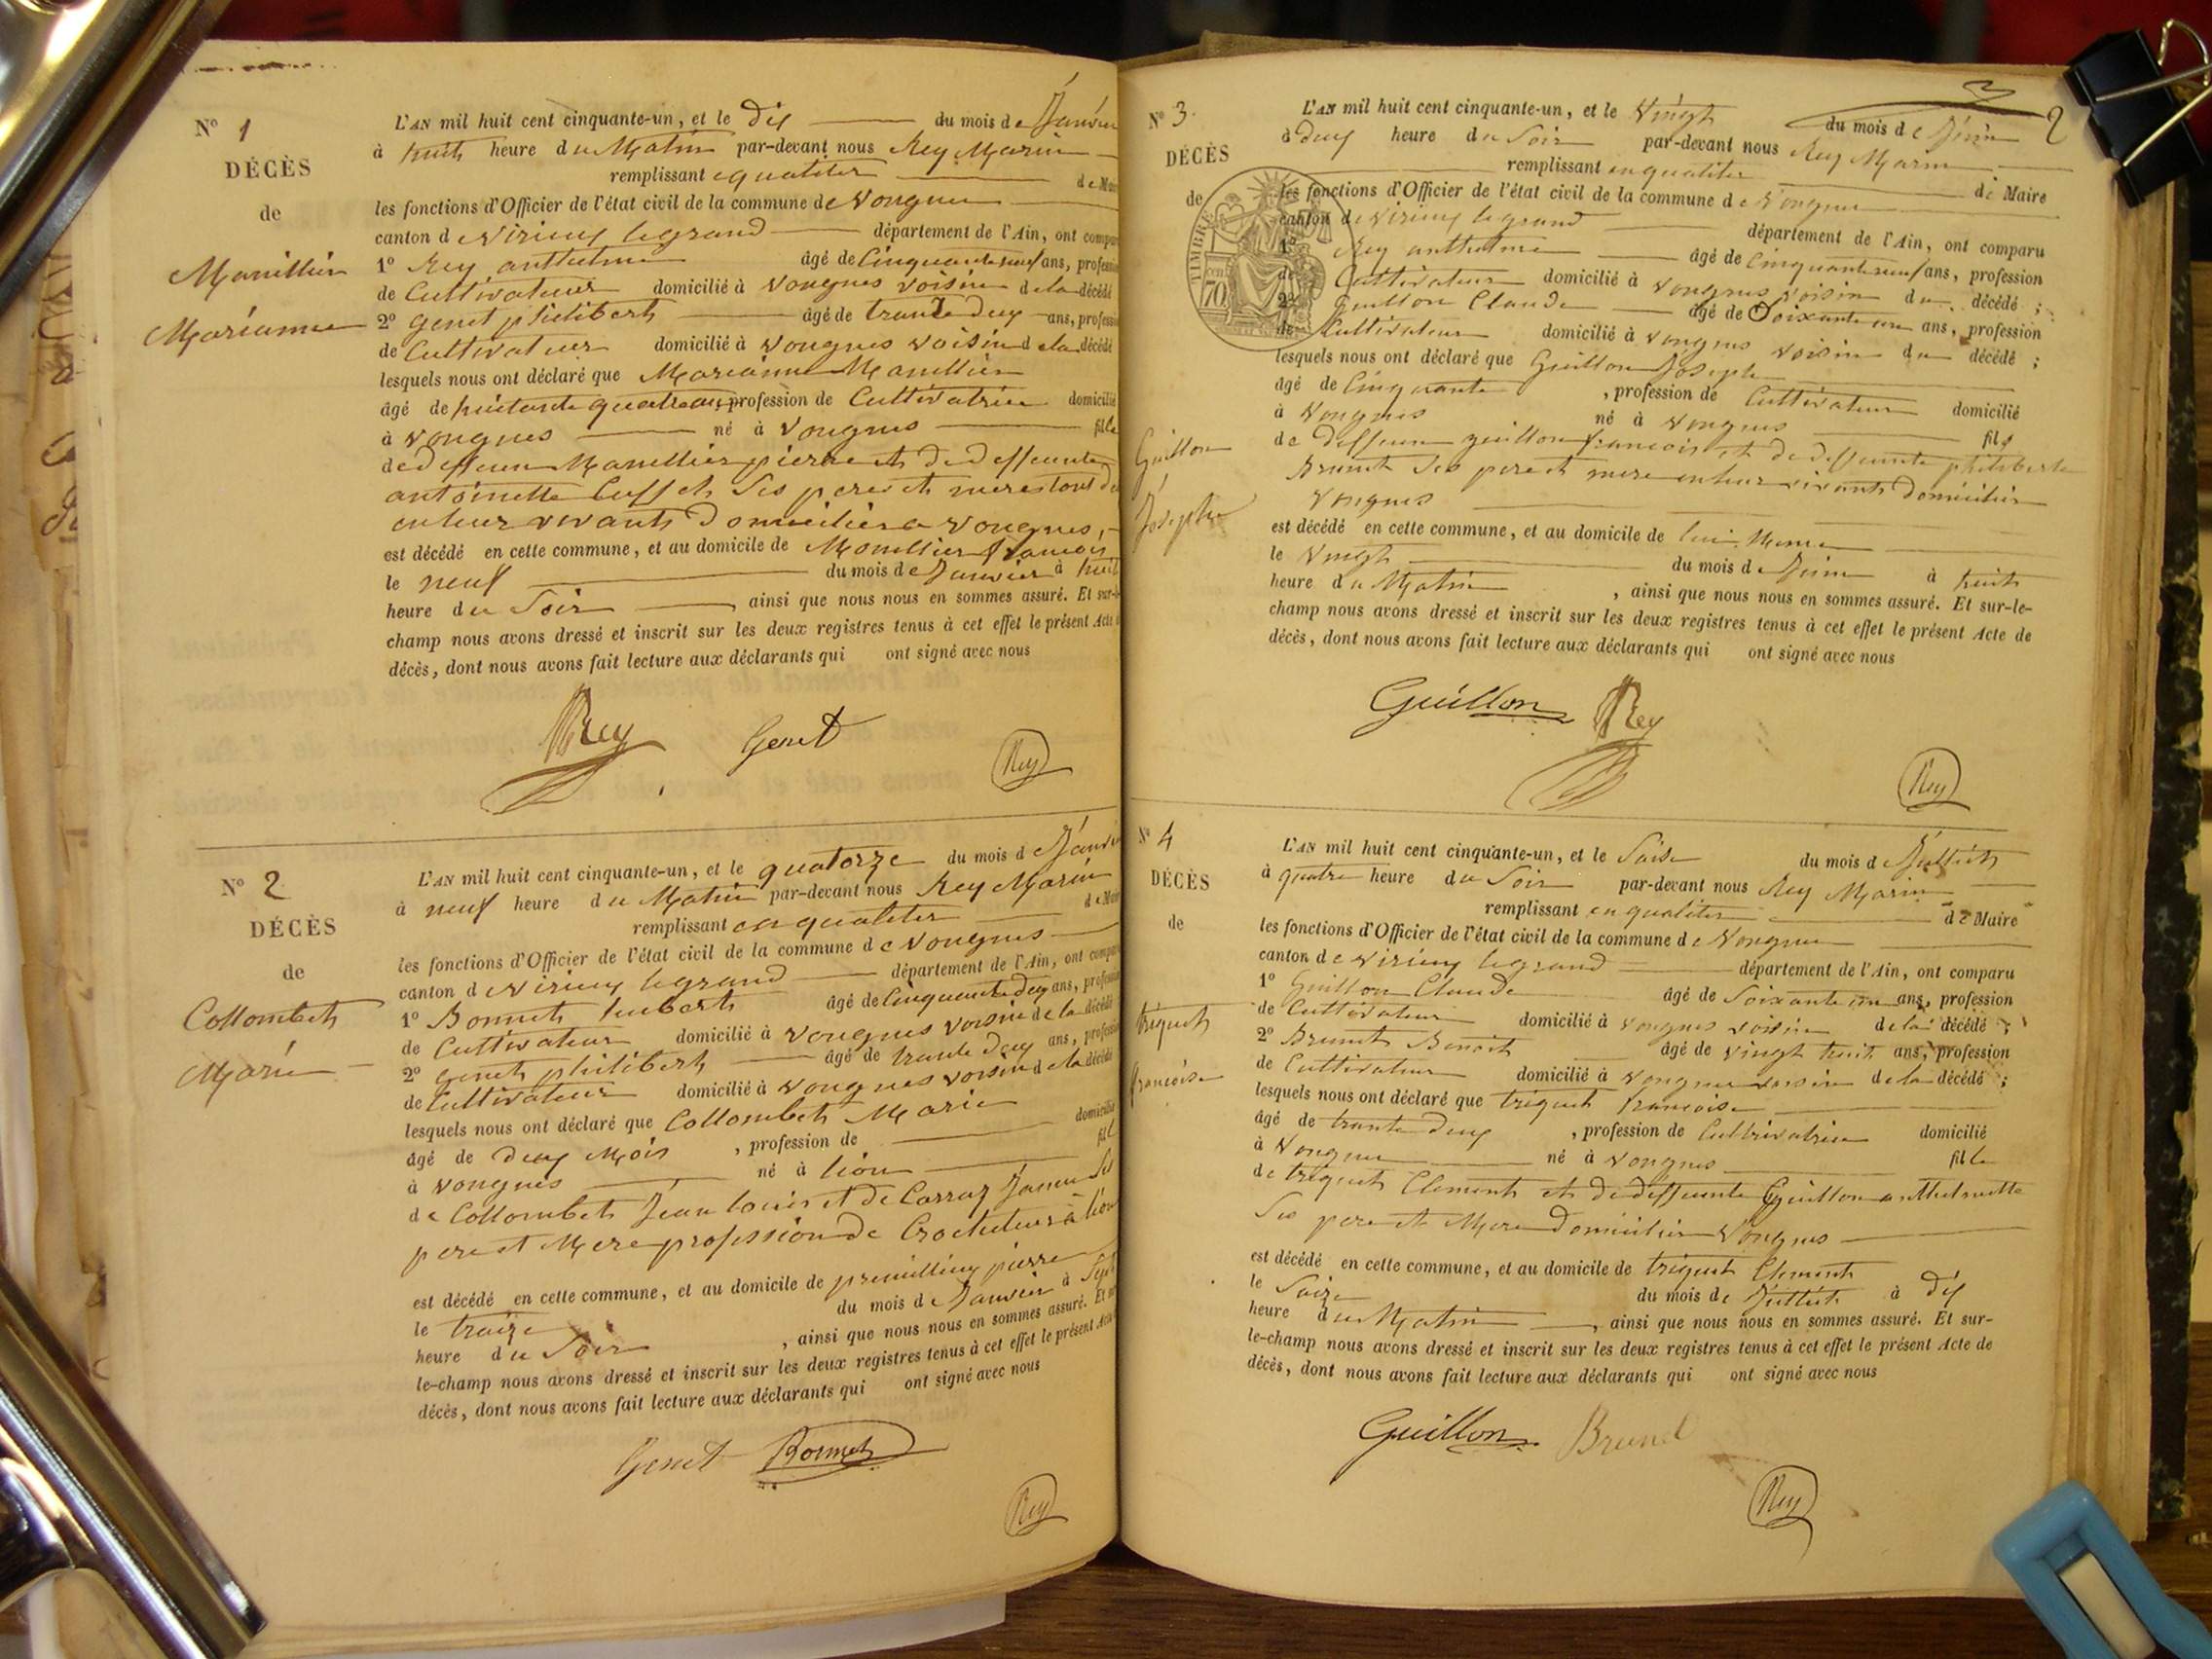 N° 1
DÉCÈS
de
Manillier
Marianne
L'AN mil huit cent cinquante-un, et le dix du mois de Janvier
à huit heure du Matin par-devant nous Rey Marin
remplissant equaliter de Mai
les fonctions d'Officier de l'état civil de la commune de Vongnes
canton de Virieux legrand département de l'Ain, ont compa
1° Rey anthelme âgé de Cinquante neuf ans, profession
de Cultivateur domicilié à Vongnes voisin de la décédé
2° Genet philibert âgé de trante deux ans, profession
de Cultivateur domicilié à Vongnes voisin de la décédé
lesquels nous ont déclaré que Marianne Manillier
âgé de huitante quatre ans, profession de Cultivatrice domicilié
à Vongnes né à Vongnes fille
de deffeun Manillier pierre et de deffeunte
antoinette Cuffet Ses pere et mere tous de
enleur vivants Domiciliés a Vongnes,
est décédé en cette commune, et au domicile de Manillier francois
le neuf du mois de Janvier à huit
heure du Soir, ainsi que nous nous en sommes assuré. Et sur-le
champ nous avons dressé et inscrit sur les deux registres tenus à cet effet le présent Acte d
décès, dont nous avons fait lecture aux déclarants qui ont signé avec nous
Rey Genet Rey
N° 2
DÉCÈS
de
Collombet
Marie
L'AN mil huit cent cinquante-un, et le quatorze du mois de Janvier
à neuf heure du Matin par-devant nous Rey Marin
remplissant enqualiter de Mai
les fonctions d'Officier de l'état civil de la commune de Vongnes
canton de Virieux legrand département de l'Ain, ont compa
1° Bonnet hubert âgé de Cinquante deux ans, profession
de Cultivateur domicilié à Vongnes voisin de la décédé
2° Genet philibert âgé de trante deux ans, profession
de Cultivateur domicilié à Vongnes voisin de la décédé
lesquels nous ont déclaré que Collombet Marie
âgé de deux Mois, profession de domicilié
à Vongnes né à lion fil
de Collombet Jean louis et de Carraz Ses
pere et Mere profession de Crocheteur à lion
est décédé en cette commune, et au domicile de premillieux pierre
le traize du mois de Janvier à Sept
heure du Soir, ainsi que nous nous en sommes assuré. Et sur
le-champ nous avons dressé et inscrit sur les deux registres tenus à cet effet le présent Acte
décès, dont nous avons fait lecture aux déclarants qui ont signé avec nous
Genet Bonnet
Rey
2
N° 3.
DÉCÈS
de
Guillon
Joseph
TIMBRE
70
L'AN mil huit cent cinquante-un, et le Vingt du mois de Juin
à deux heure du Soir par-devant nous Rey Marin
remplissant enqualiter de Maire
les fonctions d'Officier de l'état civil de la commune de Vongnes
canton de Virieux legrand département de l'Ain, ont comparu
1° Rey anthelme âgé de Cinquante neuf ans, profession
de Cultivateur domicilié à Vongnes voisin du décédé ;
2° Guillon Claude âgé de Soixante un ans, profession
de Cultivateur domicilié à Vongnes voisin du décédé ;
lesquels nous ont déclaré que Guillon Joseph
âgé de Cinquante, profession de Cultivateur domicilié
à Vongnes né à Vongnes fils
de deffeun guillon francois et de deffeunte philiberte
Brunet Ses pere et mere enleur vivants Domiciliés
Vongnes
est décédé en cette commune, et au domicile de lui Meme
le Vingt du mois de Juin à huit
heure du Matin, ainsi que nous nous en sommes assuré. Et sur-le-
champ nous avons dressé et inscrit sur les deux registres tenus à cet effet le présent Acte de
décès, dont nous avons fait lecture aux déclarants qui ont signé avec nous
Guillon Rey
Rey
N° 4
DÉCÈS
de
triquet
francoise
L'AN mil huit cent cinquante-un, et le Saise du mois de Julliet
à quatre heure du Soir par-devant nous Rey Marin
remplissant enqualiter de Maire
les fonctions d'Officier de l'état civil de la commune de Vongnes
canton de Virieux legrand département de l'Ain, ont comparu
1° Guillon Claude âgé de Soixante un ans, profession
de Cultivateur domicilié à Vongnes voisin de la décédé ;
2° Brunet Benoit âgé de vingt huit ans, profession
de Cultivateur domicilié à Vongnes voisin de la décédé ;
lesquels nous ont déclaré que triquet francoise
âgé de trante deux, profession de Cultivatrice domicilié
à Vongnes né à Vongnes fille
de triquet Clement et de deffeunte Guillon anthelmette
Ses pere et Mere Domiciliés Vongnes
est décédé en cette commune, et au domicile de triquet Clement
le Saize du mois de Julliet à dix
heure du Matin, ainsi que nous nous en sommes assuré. Et sur-
le-champ nous avons dressé et inscrit sur les deux registres tenus à cet effet le présent Acte de
décès, dont nous avons fait lecture aux déclarants qui ont signé avec nous
Guillon Brunet
Rey